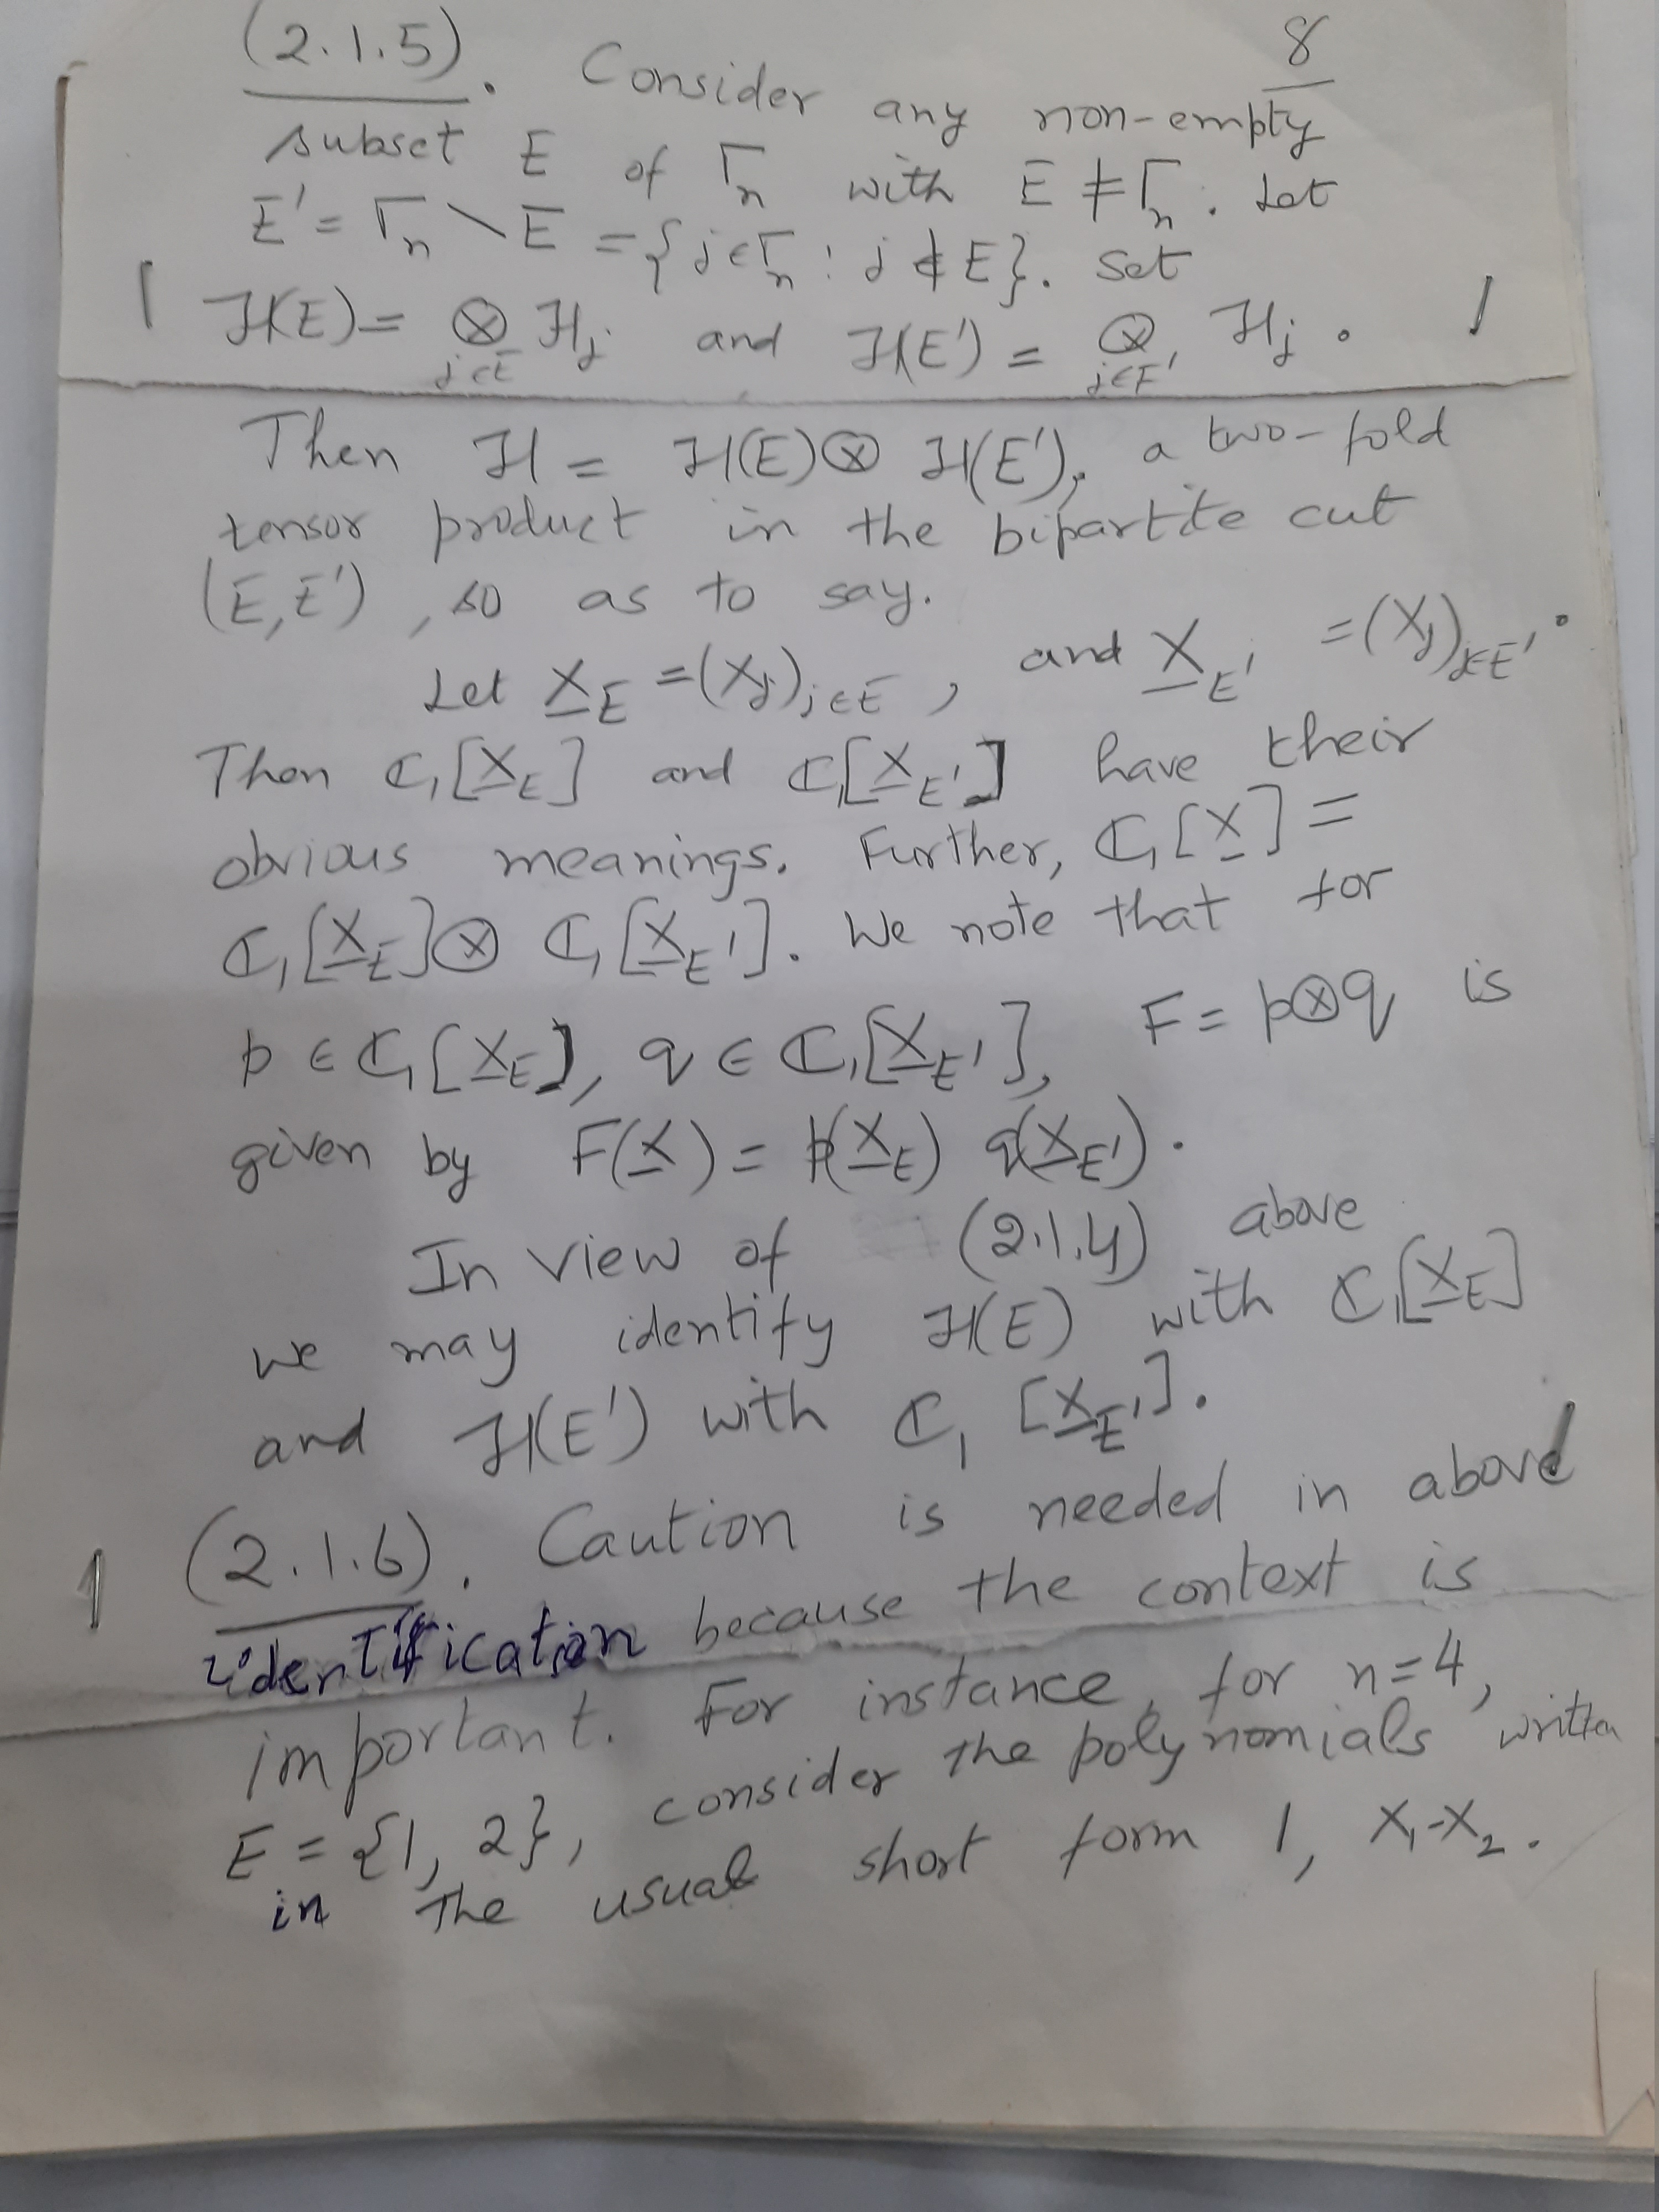 8
(2.1.5). Consider any non-empty
subset E of Γₙ with E ≠ Γₙ. Let
E' = Γₙ \ E = {j ∈ Γₙ : j ∉ E}. Set
ℋ(E) = ⊗_{j∈E} ℋⱼ and ℋ(E') = ⊗_{j∈E'} ℋⱼ.
Then ℋ = ℋ(E) ⊗ ℋ(E'), a two-fold
tensor product in the bipartite cut
(E, E'), so as to say.
Let X̲_E = (Xⱼ)_{j∈E}, and X̲_{E'} = (Xⱼ)_{j∈E'}.
Then ℂ₁[X̲_E] and ℂ₁[X̲_{E'}] have their
obvious meanings. Further, ℂ₁[X̲] =
ℂ₁[X̲_E] ⊗ ℂ₁[X̲_{E'}]. We note that for
p ∈ ℂ₁[X̲_E], q ∈ ℂ₁[X̲_{E'}], F = p⊗q is
given by F(X̲) = p(X̲_E) q(X̲_{E'}).
In view of (2.1.4) above
we may identify ℋ(E) with ℂ₁[X̲_E]
and ℋ(E') with ℂ₁[X̲_{E'}].
(2.1.6). Caution is needed in above
identification because the context is
important. For instance, for n=4,
E = {1, 2}, consider the polynomials written
in the usual short form 1, X₁-X₂.